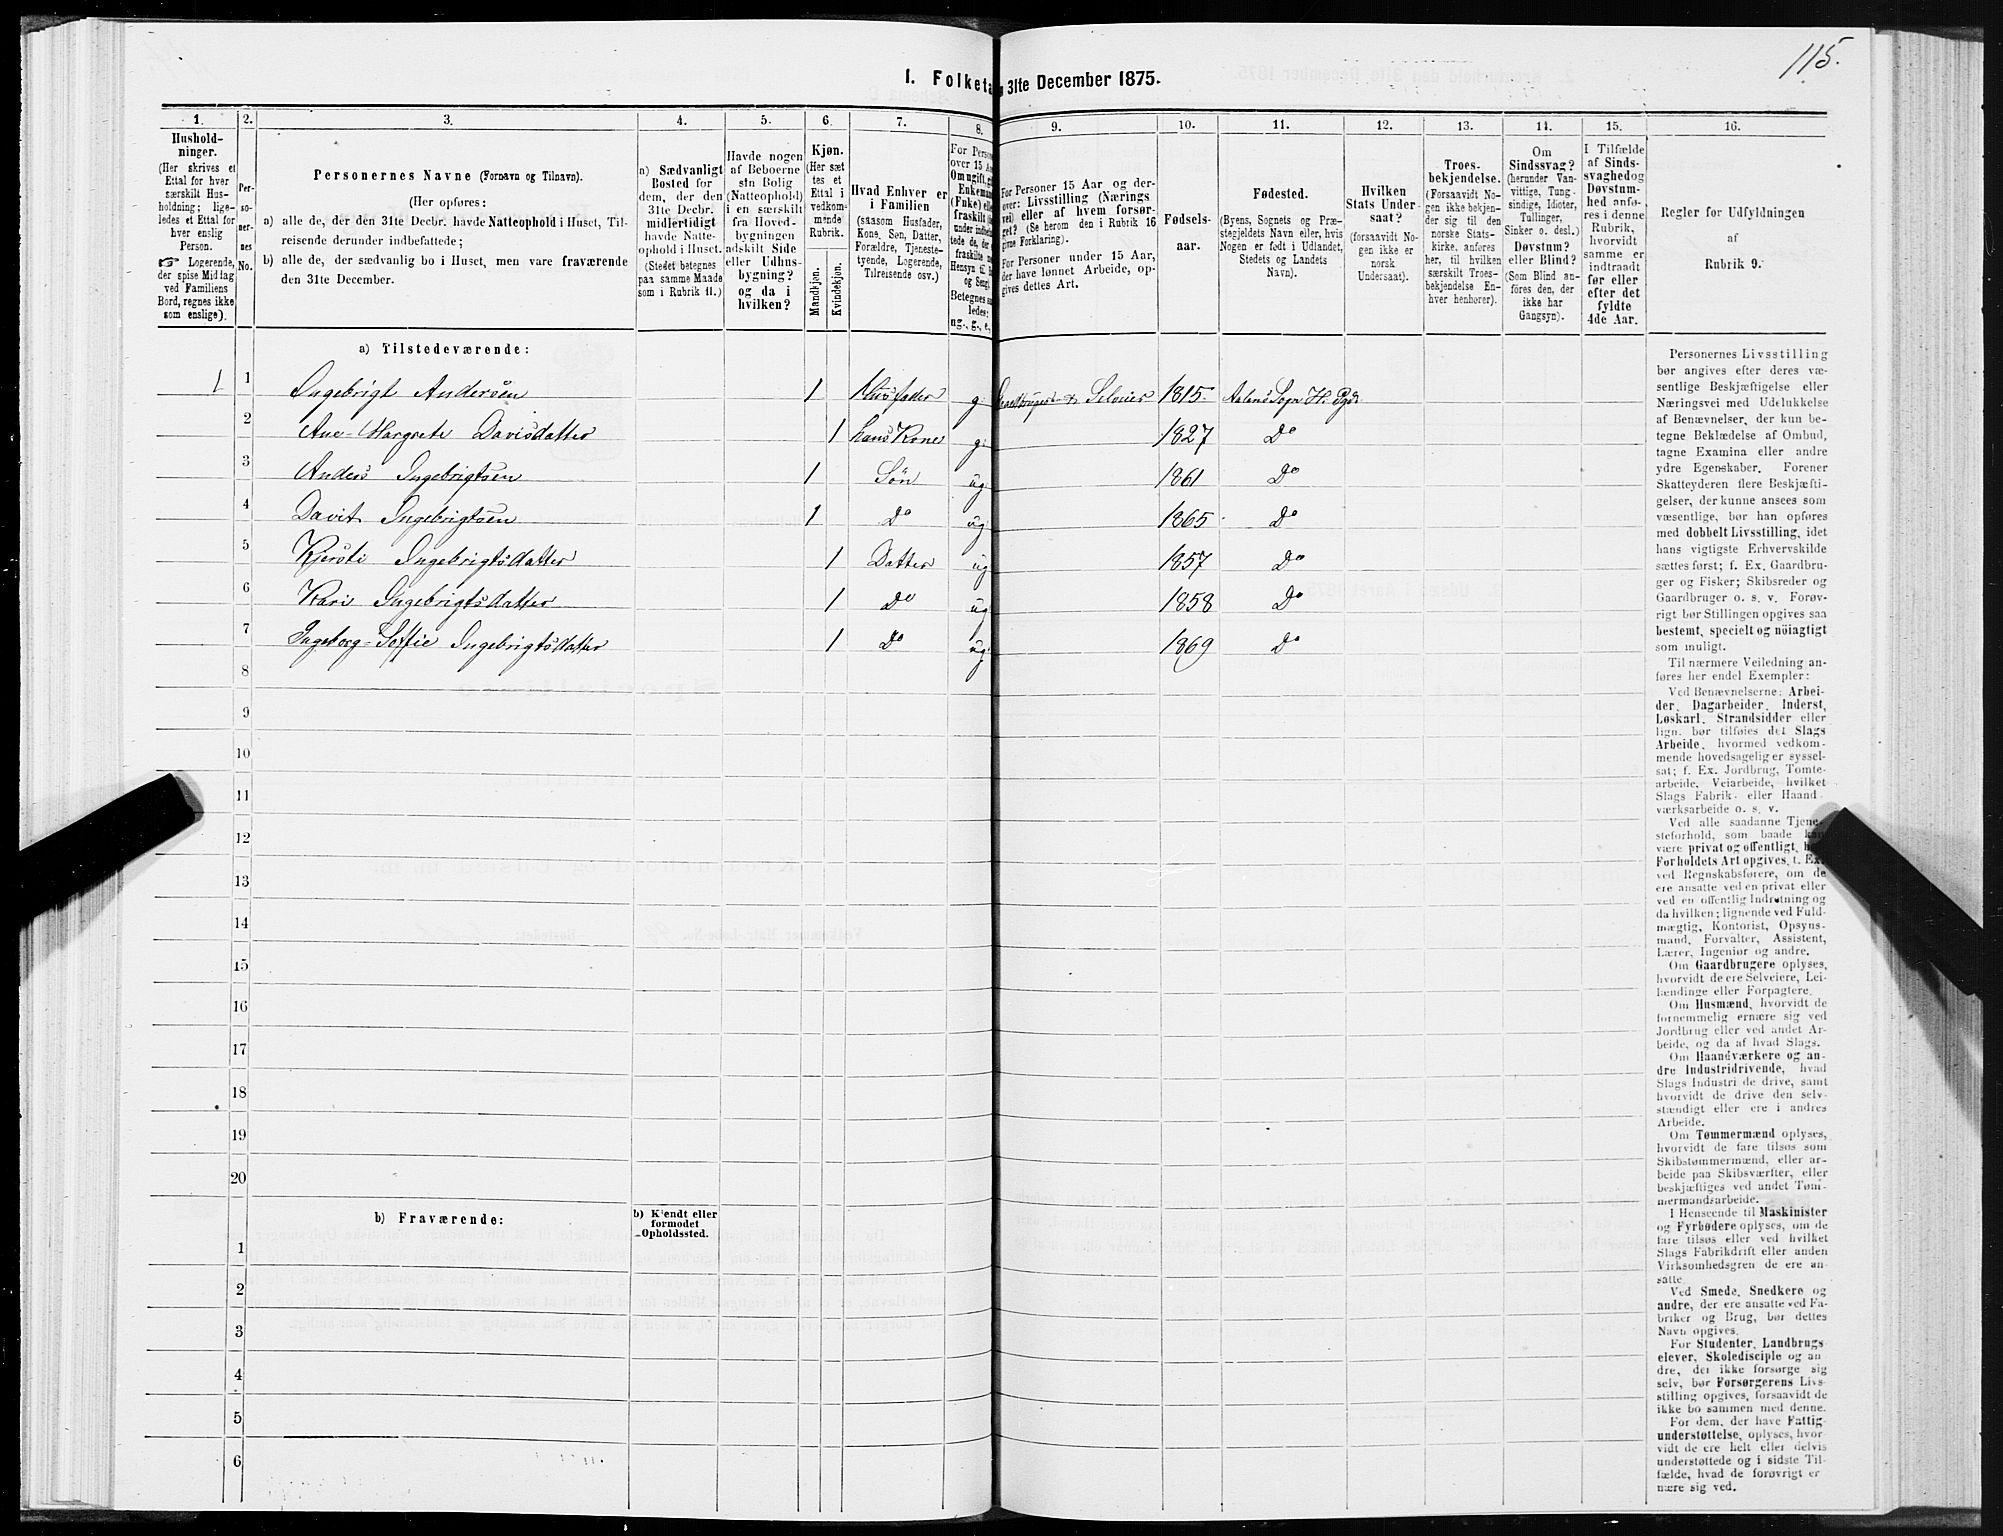 115.
1. Folketæ
n 31te December 1875.
1.
2.
3.
4.
5.
6.
7.
8.
9.
10.
11.
12.
13.
14.
15.
16.
Hushold-
ninger.
(Her skrives et
Ettal for hver
særskilt Hus-
holdning; lige-
ledes et Ettal for
hver enslig
Person.
☞ Logerende,
der spise Middag
ved Familiens
Bord, regnes ikke
som enslige).
Per-
so-
ner-
nes
No.
Personernes Navne (Fornavn og Tilnavn).
(Her opføres:
a) alle de, der den 31te Decbr. havde Natteophold i Huset, Til-
reisende derunder indbefattede;
b) alle de, der sædvanlig bo i Huset, men vare fraværende
den 31te December.
a) Sædvanligt
Bosted for
dem, der den
31te Decbr.
midlertidigt
havde Natte-
ophold i Huset.
(Stedet betegnes
paa samme Maade
som i Rubrik 11.)
Havde nogen
af Beboerne
sin Bolig
(Natteophold)
i en særskilt
fra Hoved-
bygningen
adskilt Side
eller Udhus-
bygning?
og da i
hvilken?
Kjøn.
(Her sæt
tes et
Ettal i
vedkom-
mende
Rubrik.
Mandkjøn.
Kvindekjøn.
Hvad Enhver er
i Familien
(saasom Husfader,
Kone, Søn, Datter,
Forældre, Tjeneste-
tyende, Logerende,
Tilreisende osv.)
For Person
over 15 Aa
Om ugift, gi
Enkemand
(Enke) elle
fraskilt
under indbe
tede de, de
fraskilte
Hensyn til
og Seng
Betegnes s
ledes:
ug., g., e.,
For Personer 15 Aar og der-
over: Livsstilling (Nærings
vei) eller af hvem forsør-
get? (Se herom den i Rubrik 16
givne Forklaring).
For Personer under 15 Aar,
der have lønnet Arbeide, op-
gives dettes Art.
Fødsels-
aar.
Fødested.
(Byens, Sognets og Præ-
stegjeldets Navn eller, hvis
Nogen er født i Udlandet,
Stedets og Landets
Navn).
Hvilken
Stats Under-
saat?
(forsaavidt No-
gen ikke er
norsk
Undersaat).
Troes-
bekjendelse.
(Forsaavidt No-
gen ikke bekjen-
der sig til den
norske Stats-
kirke, anføres
her, til hvilken
særskilt Troes-
bekjendelse En-
hver henhører).
Om
Sindssvag?
(herunder Van-
vittige, Tung-
sindige, Idioter,
Tullinger,
Sinker o. desl.)
Døvstum?
eller Blind?
(Som Blind an-
føres den, der
ikke har
Gangsyn).
I Tilfælde
af Sinds-
svaghed og
Døvstum-
hed anfø-
res i denne
Rubrik,
hvorvidt
samme er
indtraadt
før eller
efter det
fyldte
4de Aar.
Regler for Udfyldningen
af
Rubrik 9.
a) Tilstedeværende:
1 1 Ingebrigt Andersen 1 Husfader g: Gaardbruger & Selveier 1815 Aalens Sogn H. Pgd.
2 Ane-Margrete Davisdatter 1 hans Kone g: 1827 Do
3 Anders Ingebrigtsen 1 Søn ug: 1861 Do
4 Davit Ingebrigtsen 1 Do ug: 1865 Do
5 Kjersti Ingebrigtsdatter 1 Datter ug: 1857 Do
6 Kari Ingebrigtsdatter 1 Do ug: 1858 Do
7 Ingeborg-Soffie Ingebrigtsdatter 1 Do ug: 1869 Do
8
9
10
11
12
13
14
15
16
17
18
19
20
b) Fraværende:
b) Kjendt eller
formodet
Opholdssted.
1
2
3
4
5
6
Personernes Livsstilling
bør angives efter deres væ-
sentlige Beskjæftigelse eller
Næringsvei med Udelukkelse
af Benævnelser, der kun be-
tegne Beklædelse af Ombud,
tagne Examina eller andre
ydre Egenskaber. Forener
Skatteyderen flere Beskjæfti-
gelser, der kunne ansees som
væsentlige, bør han opføres
med dobbelt Livsstilling, idet
hans vigtigste Erhvervskilde
sættes først; f. Ex. Gaardbru-
ger og Fisker; Skibsreder og
Gaardbruger o. s. v. Forøv-
rigt bør Stillingen opgives saa
bestemt, specielt og nöiagtigt
som muligt.
Til nærmere Veiledning an-
føres her endel Exempler:
Ved Benævnelserne: Arbei-
der, Dagarbeider, Inderst,
Løskarl, Strandsidder eller
lign. bør tilføies det Slags
Arbeide, hvormed vedkom-
mende hovedsagelig er syssel-
sat; f. Ex. Jordbrug, Tomte-
arbeide, Veiarbeide, hvilket
Slags Fabrik- eller Haand-
værksarbeide o. s. v.
Ved alle saadanne Tjene-
steforhold, som baade kan
være privat og offentligt, b
Forholdets Art opgives, f. Ex.
ved Regnskabsførere, om de
ere ansatte ved en privat eller
ved en offentlig Indretning og
da hvilken; lignende ved Fuld-
mægtig, Kontorist, Opsyns-
mand, Forvalter, Assistent,
Lærer, Ingeniør og andre.
Om Gaardbrugere oplyses,
hvorvidt de ere Selveiere, Lei-
lændinge eller Forpagtere.
Om Husmænd, hvorvidt de
fornemmelig ernære sig ved
Jordbrug eller ved andet Ar-
beide, og da af hvad Slags.
Om Haandværkere og an-
dre Industridrivende, hvad
Slags Industri de drive, samt
hvorvidt de drive den selv-
stændigt eller ere i andres
Arbeide.
Om Tømmermænd oplyses,
hvorvidt de fare tilsøs som
Skibstømmermænd, eller ar-
beide paa Skibsværfter, eller
beskjæftiges ved andet Tøm-
mermandsarbeide.
I Henseende til Maskinister
og Fyrbödere oplyses, om de
fare tilsøs eller ved hvilket
Slags Fabrikdrift eller anden
Virksomhedsgren de ere an-
satte.
Ved Smede, Snedkere og
andre, der ere ansatte ved Fa-
briker og Brug, bør dettes
Navn opgives.
For Studenter, Landbrugs-
elever, Skoledisciple og an-
dre, der ikke forsørge sig
selv, bør Forsørgerens Livs-
stilling opgives, forsaavidt de
ikke bo sammen med denne.
For dem, der have Fattig-
understøttelse, oplyses, hvor-
vidt de ere helt eller delvis
understøttede og i sidste Til-
fælde, hvad de forøvrigt er-
nære sig ved.